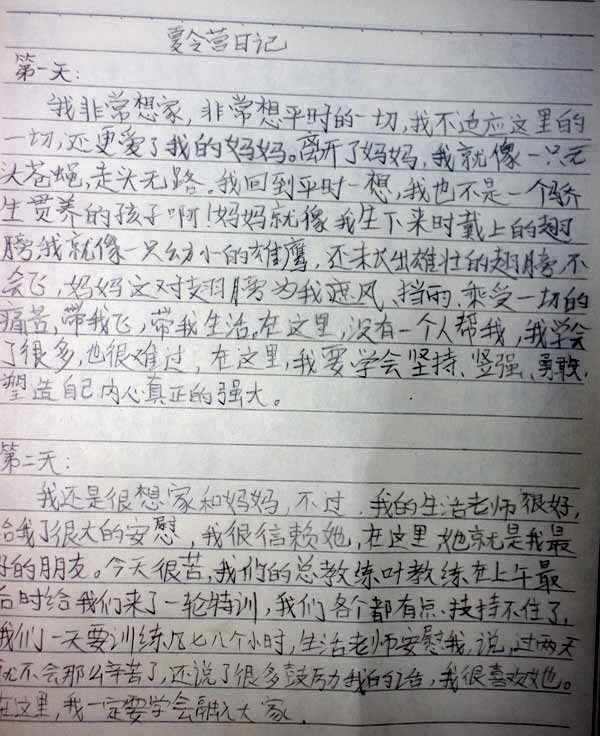 夏令营日记
第一天:
我非常想家,非常想平时的一切,我不适应这里的
一切,还更爱了我的妈妈。离开了妈妈,我就像一只无
头苍蝇,走头无路。我回到平时一想,我也不是一个娇
生贯养的孩子啊!妈妈就像我生下来时戴上的翅
膀,我就像一只幼小的雄鹰,还未长出雄壮的翅膀,不
会飞,妈妈这对翅膀为我遮风、挡雨、乘受一切的
痛苦,带我飞,带我生活,在这里,没有一个人帮我,我学会
了很多,也很难过,在这里,我要学会坚持、坚强、勇敢,
塑造自己内心真正的强大。
第二天:
我还是很想家和妈妈,不过,我的生活老师很好,
给我了很大的安慰,我很信赖她,在这里她就是我最
好的朋友。今天很苦,我们的总教练叶教练在上午最
后时给我们来了一轮特训,我们各个都有点扶持不住了,
我们一天要训练七八个小时,生活老师安慰我,说,过两天
就不会那么辛苦了,还说了很多鼓励我的话,我很喜欢她。
在这里,我一定要学会融入大家.